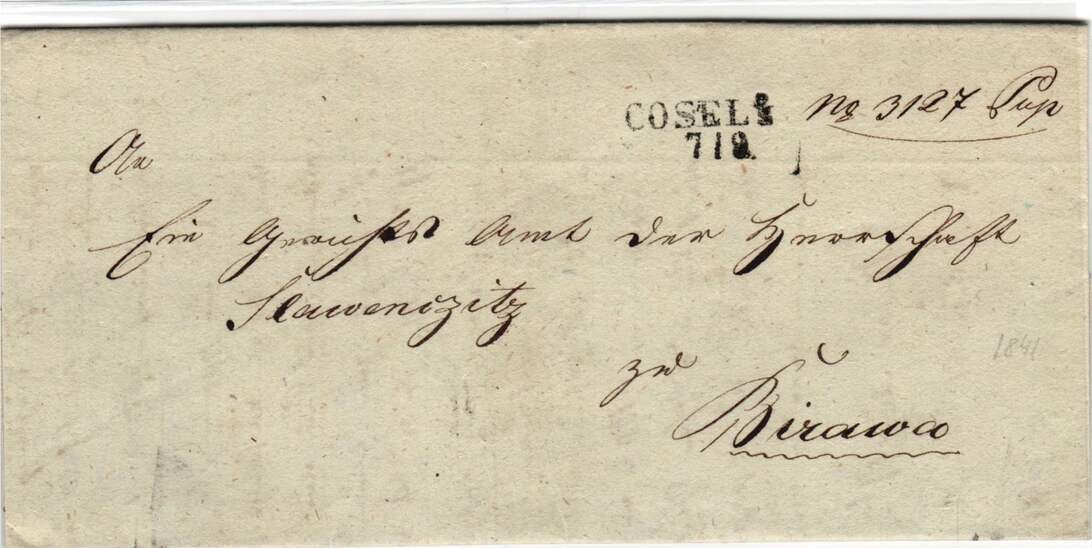 COSEL
7/9.
No 3127 Pup
An
Ein Gerichts Amt der Herrschaft
Slawenczitz
zu
Birawa
1841